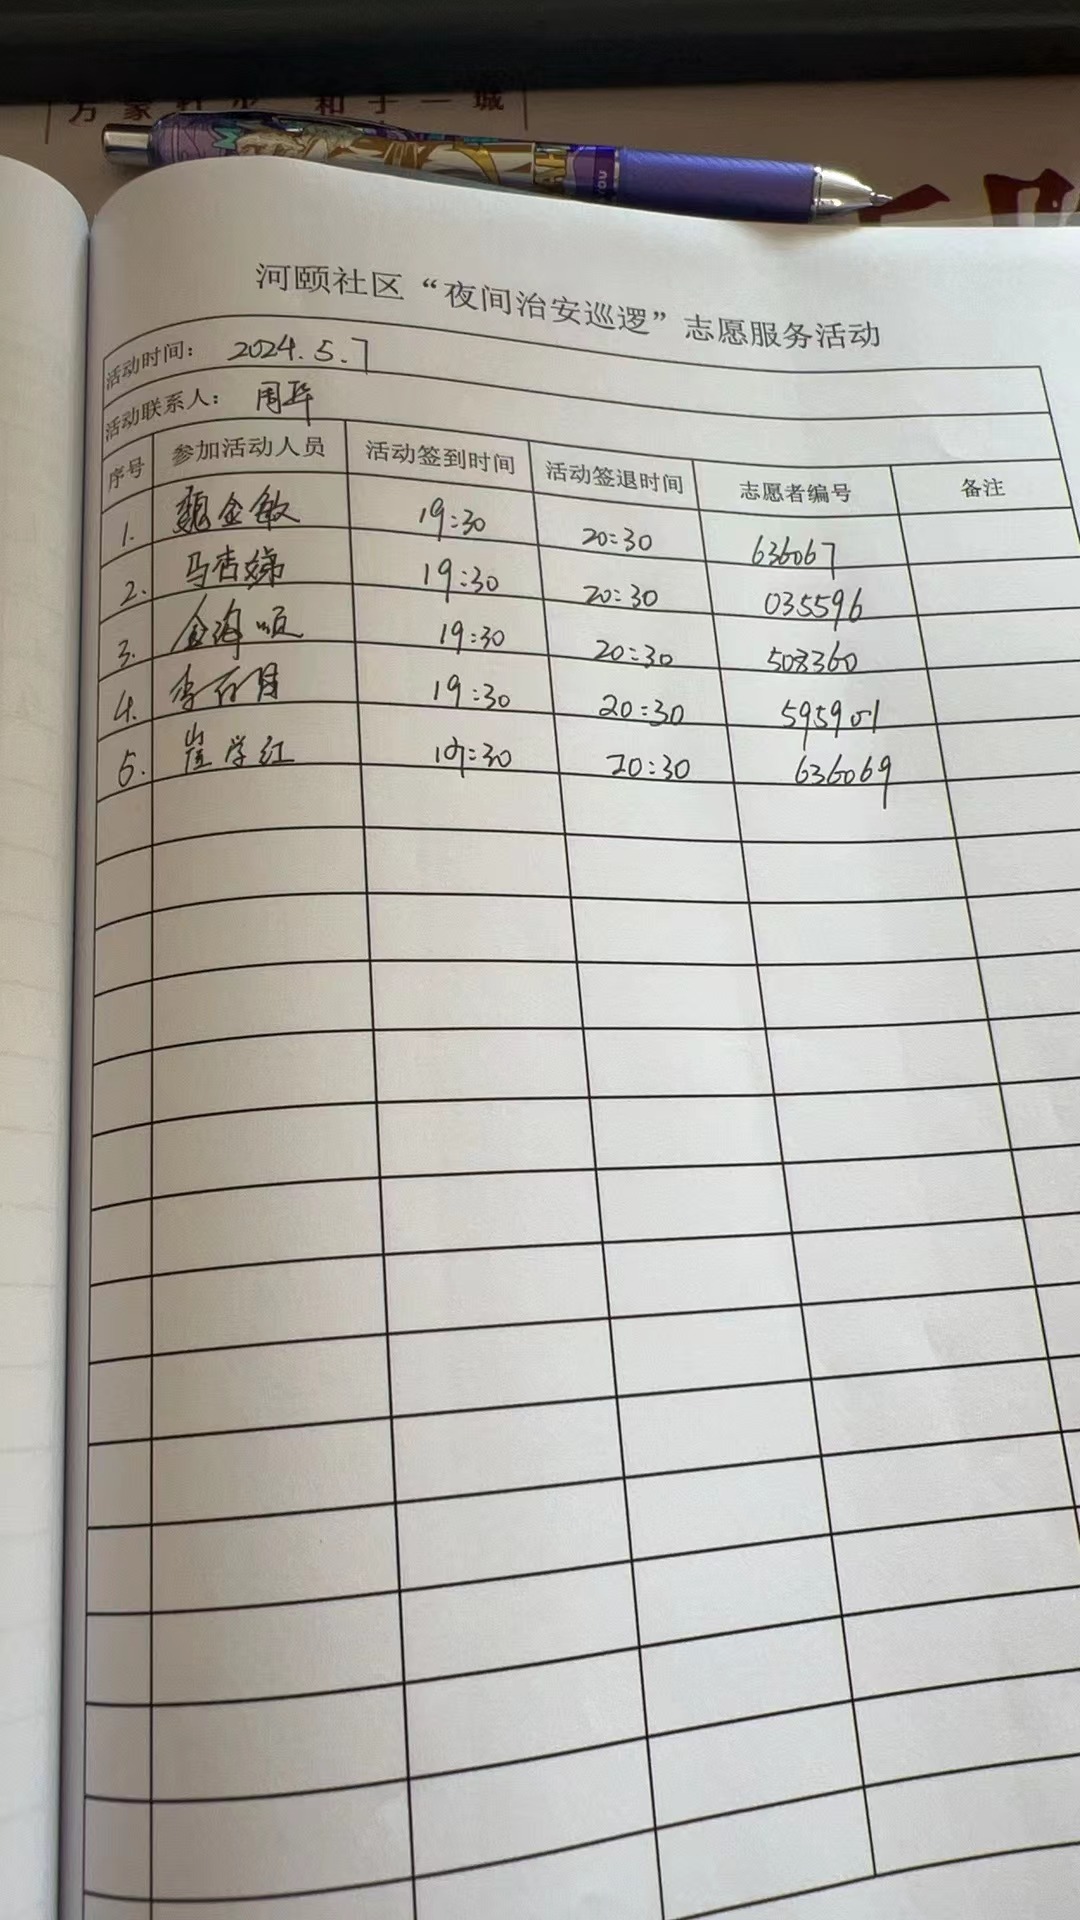 河颐社区“夜间治安巡逻”志愿服务活动
活动时间： 2024.5.7
活动联系人： 周华
序号 参加活动人员 活动签到时间 活动签退时间 志愿者编号 备注
1. 魏金敏 19:30 20:30 636067
2. 马杏娣 19:30 20:30 035596
3. 金海顺 19:30 20:30 508360
4. 19:30 20:30 595901
5. 崔学红 19:30 20:30 636069